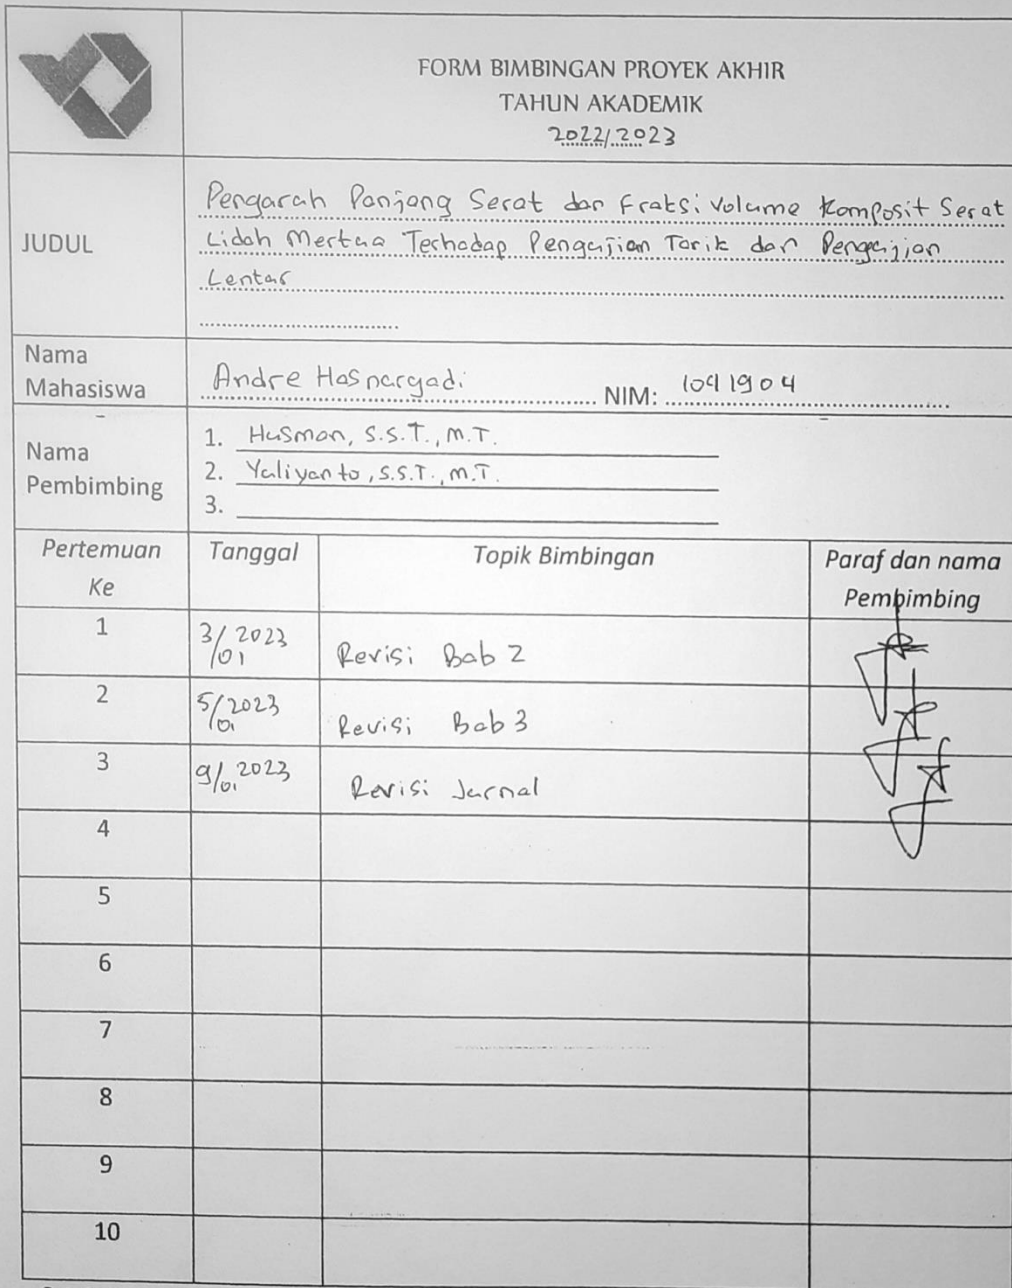 FORM BIMBINGAN PROYEK AKHIR
TAHUN AKADEMIK
2022/2023
JUDUL
Pengaruh Panjang Serat dan Fraksi Volume Komposit Serat
Lidah Mertua Terhadap Pengujian Tarik dan Pengujian
Lentur
Nama
Mahasiswa
Andre Hasnaryadi NIM: 1041904
Nama
Pembimbing
1. Husman, S.S.T., M.T.
2. Yuliyanto, S.S.T., M.T.
3.
Pertemuan
Ke
Tanggal
Topik Bimbingan
Paraf dan nama
Pembimbing
1 3/01 2023 Revisi Bab 2
2 5/01 2023 Revisi Bab 3
3 9/01 2023 Revisi Jurnal
4
5
6
7
8
9
10